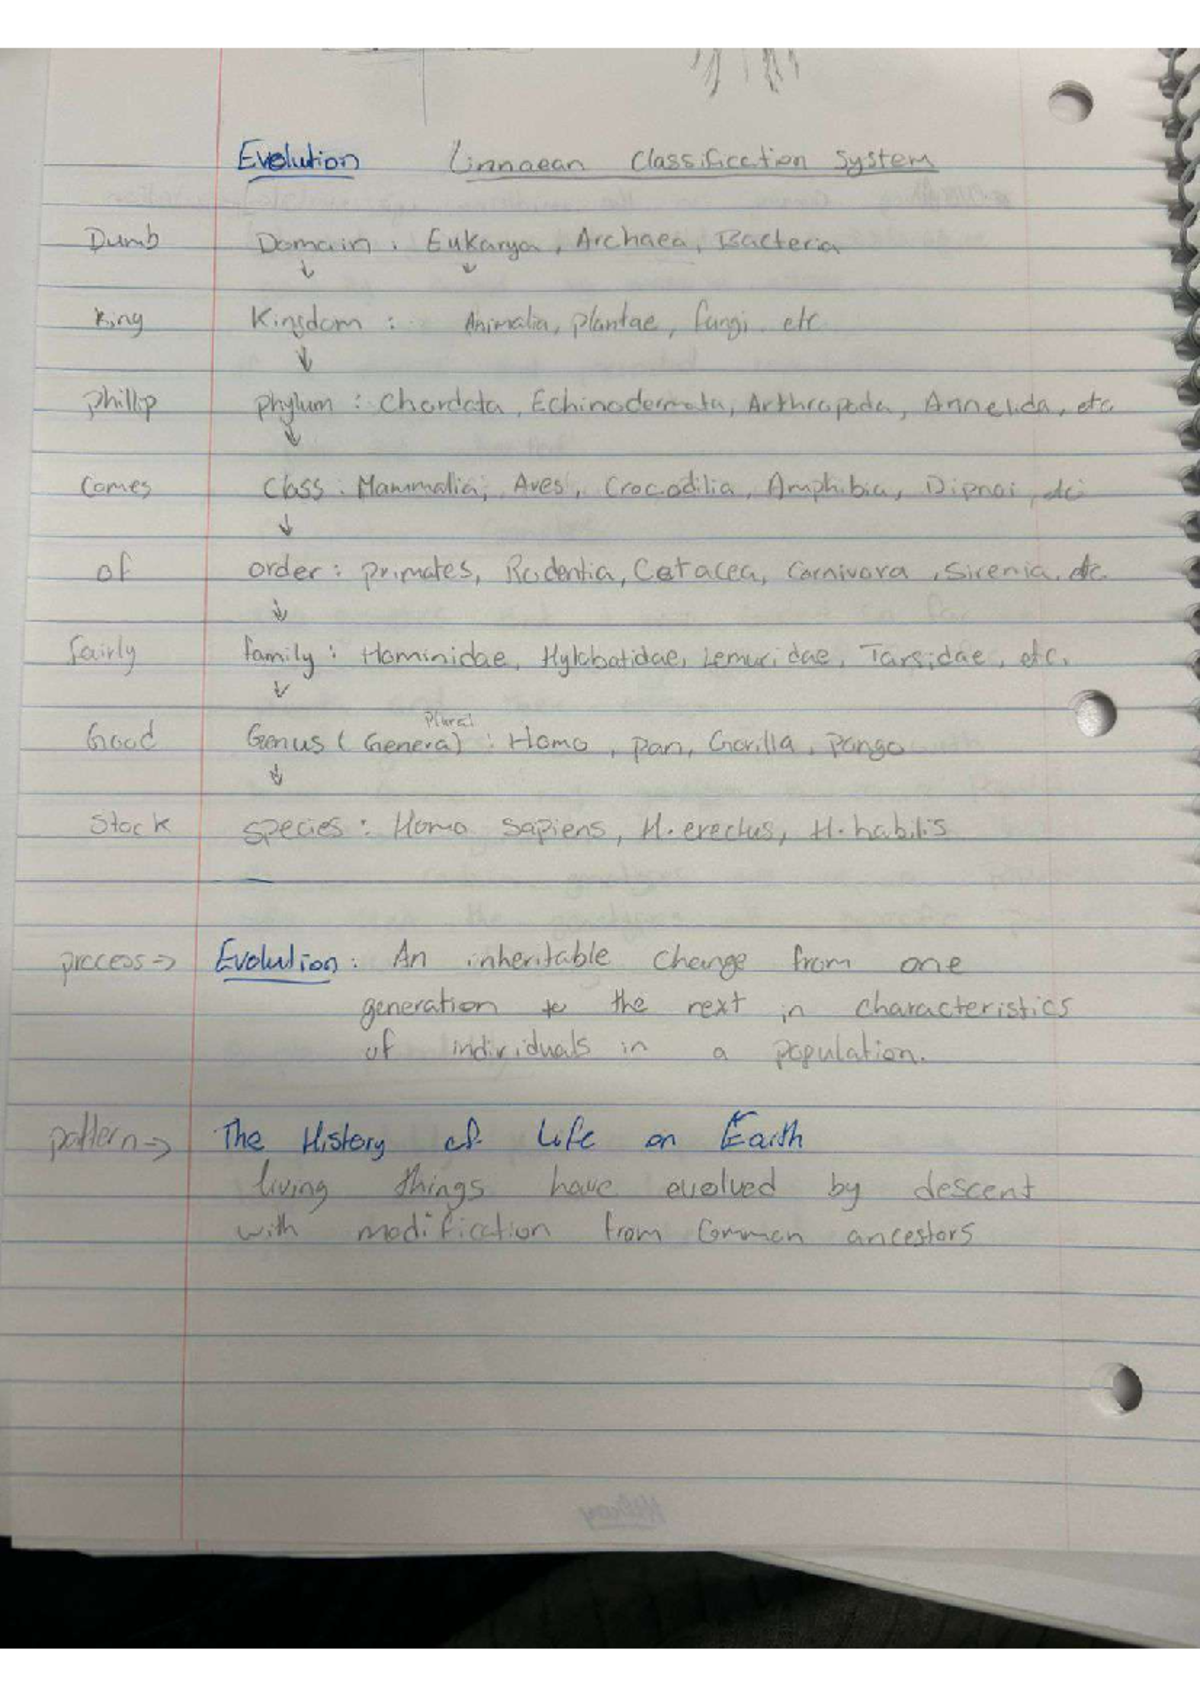 Evolution Linnaean Classification System
Dumb Domain : Eukarya, Archaea, Bacteria
King Kingdom : Animalia, plantae, fungi etc
Phillip phylum : Chordata, Echinodermata, Arthropoda, Annelida, etc
Comes Class : Mammalia, Aves, Crocodilia, Amphibia, Dipnoi, etc
of order : primates, Rodentia, Cetacea, Carnivora, Sirenia, etc.
fairly family : Hominidae, Hylobatidae, Lemuridae, Tarsidae, etc.
Plural
Good Genus (Genera) : Homo, pan, Gorilla, Pongo
Stock species : Homo sapiens, H. erectus, H. habilis
process→ Evolution : An inheritable change from one
generation to the next in characteristics
of individuals in a population.
pattern→ The History of Life on Earth
living things have evolved by descent
with modification from common ancestors
Hilroy